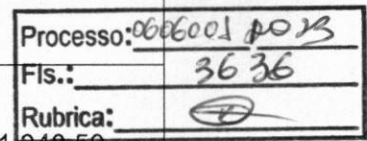 Processo: 0606001 2023
Fls.: 3636
Rubrica: